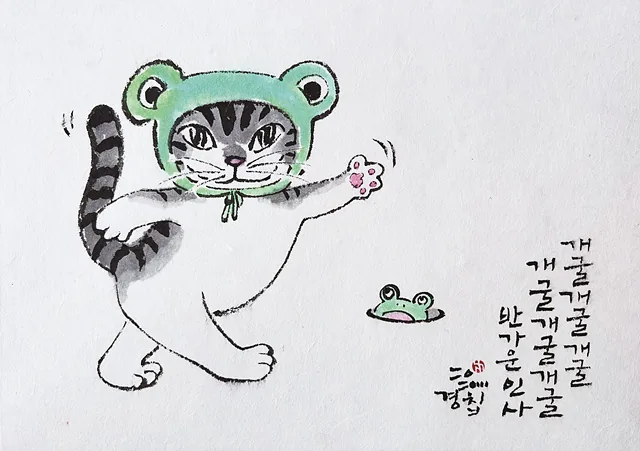 개굴개굴개굴
개굴개굴개굴
반가운 인사
경칩